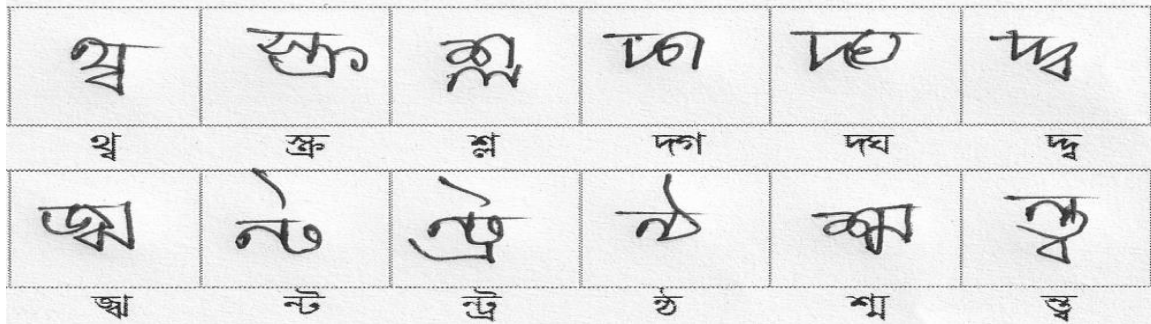 থ্ব স্ক্র শ্ল দ্গ দ্ঘ দ্দ্ব
থ্ব স্ক্র শ্ল দ্গ দ্ঘ দ্দ্ব
ন্ট ন্ট্র ন্ঠ শ্ম ন্ত্ব
ন্ট ন্ট্র ন্ঠ শ্ম ন্ত্ব